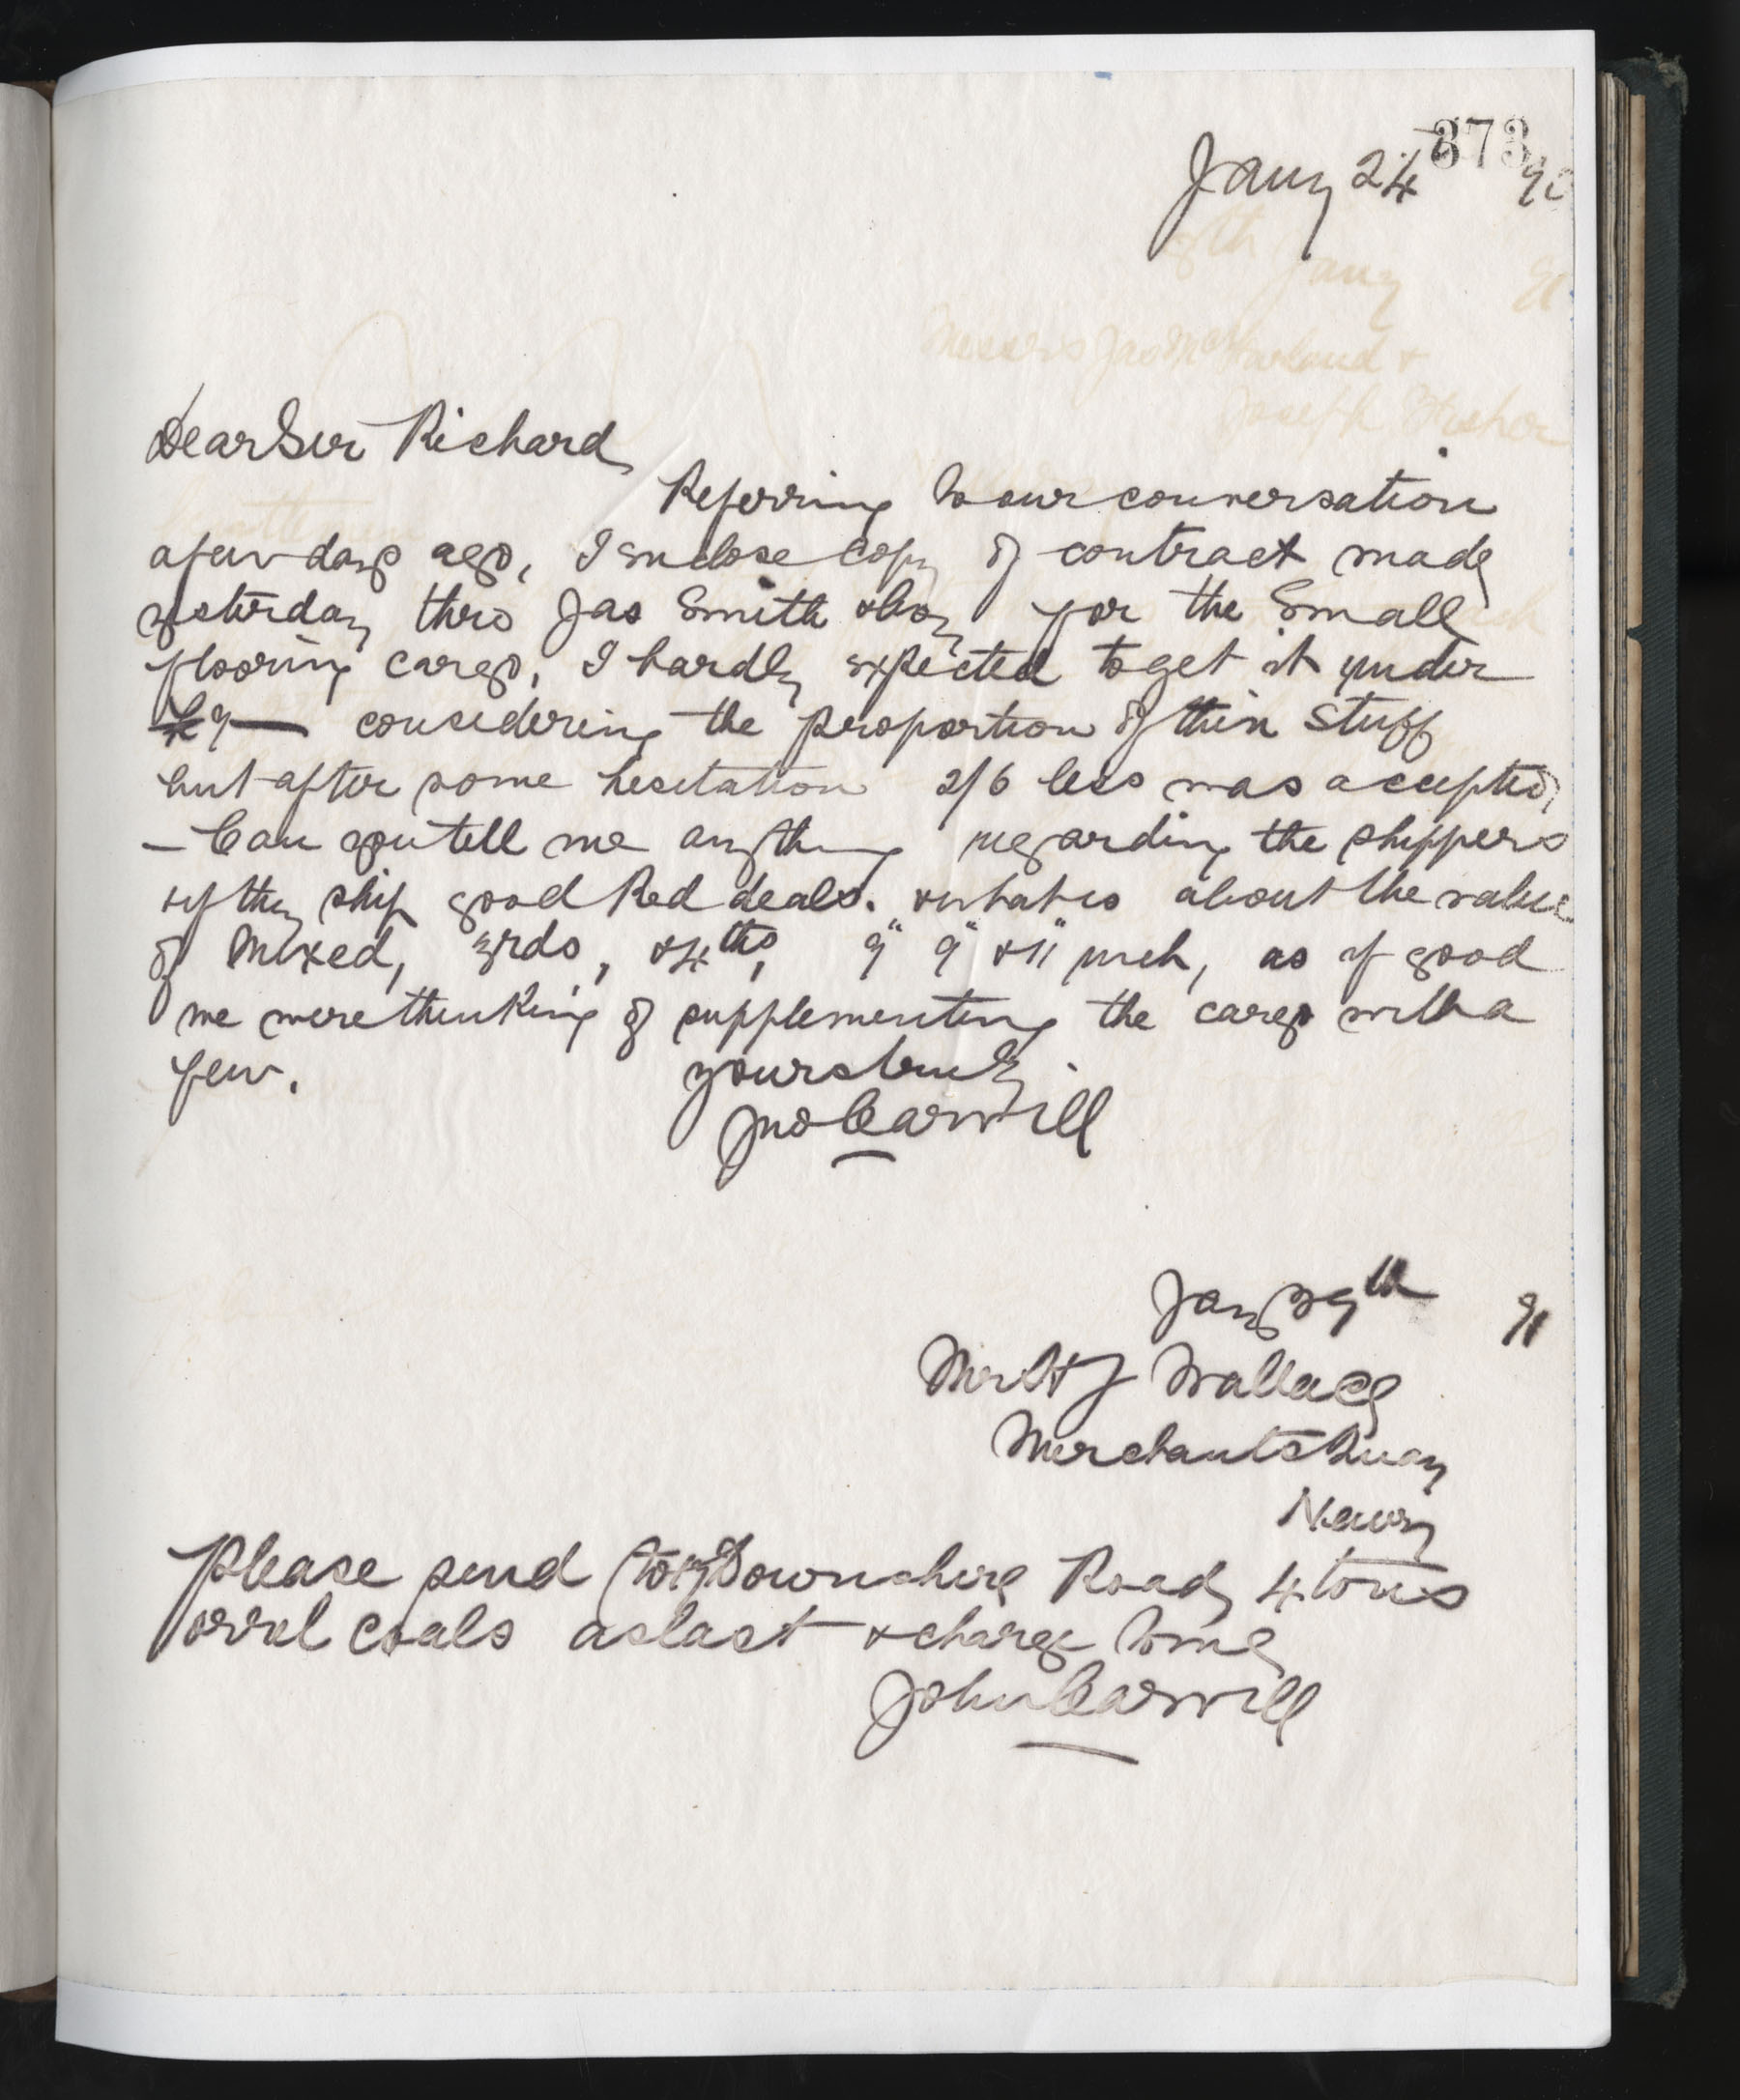 373
Jany 24 90
Dear Sir Richard
Referring to our conversation
a few days ago, I enclose copy of contract made
yesterday thro Jas Smith & Coy for the Small
flooring cargo, I hardly expected to get it under
considering the proportion of thin Stuff
but after some hesitation 2/6 less was accepted,
— Can you tell me anything regarding the shippers
if they ship good Red deals. & what is about the value
of Mixed, 3rds, & 4ths, 9" & 11" inch, as if good
we were thinking of supplementing the cargo with a
few. yours truly
Jno Carvill
Jany 29th 91
Wallace
Merchants Quay
Newry
Please send Downshire Road 4 tons
orrel coals as last & charge to me
John Carvill